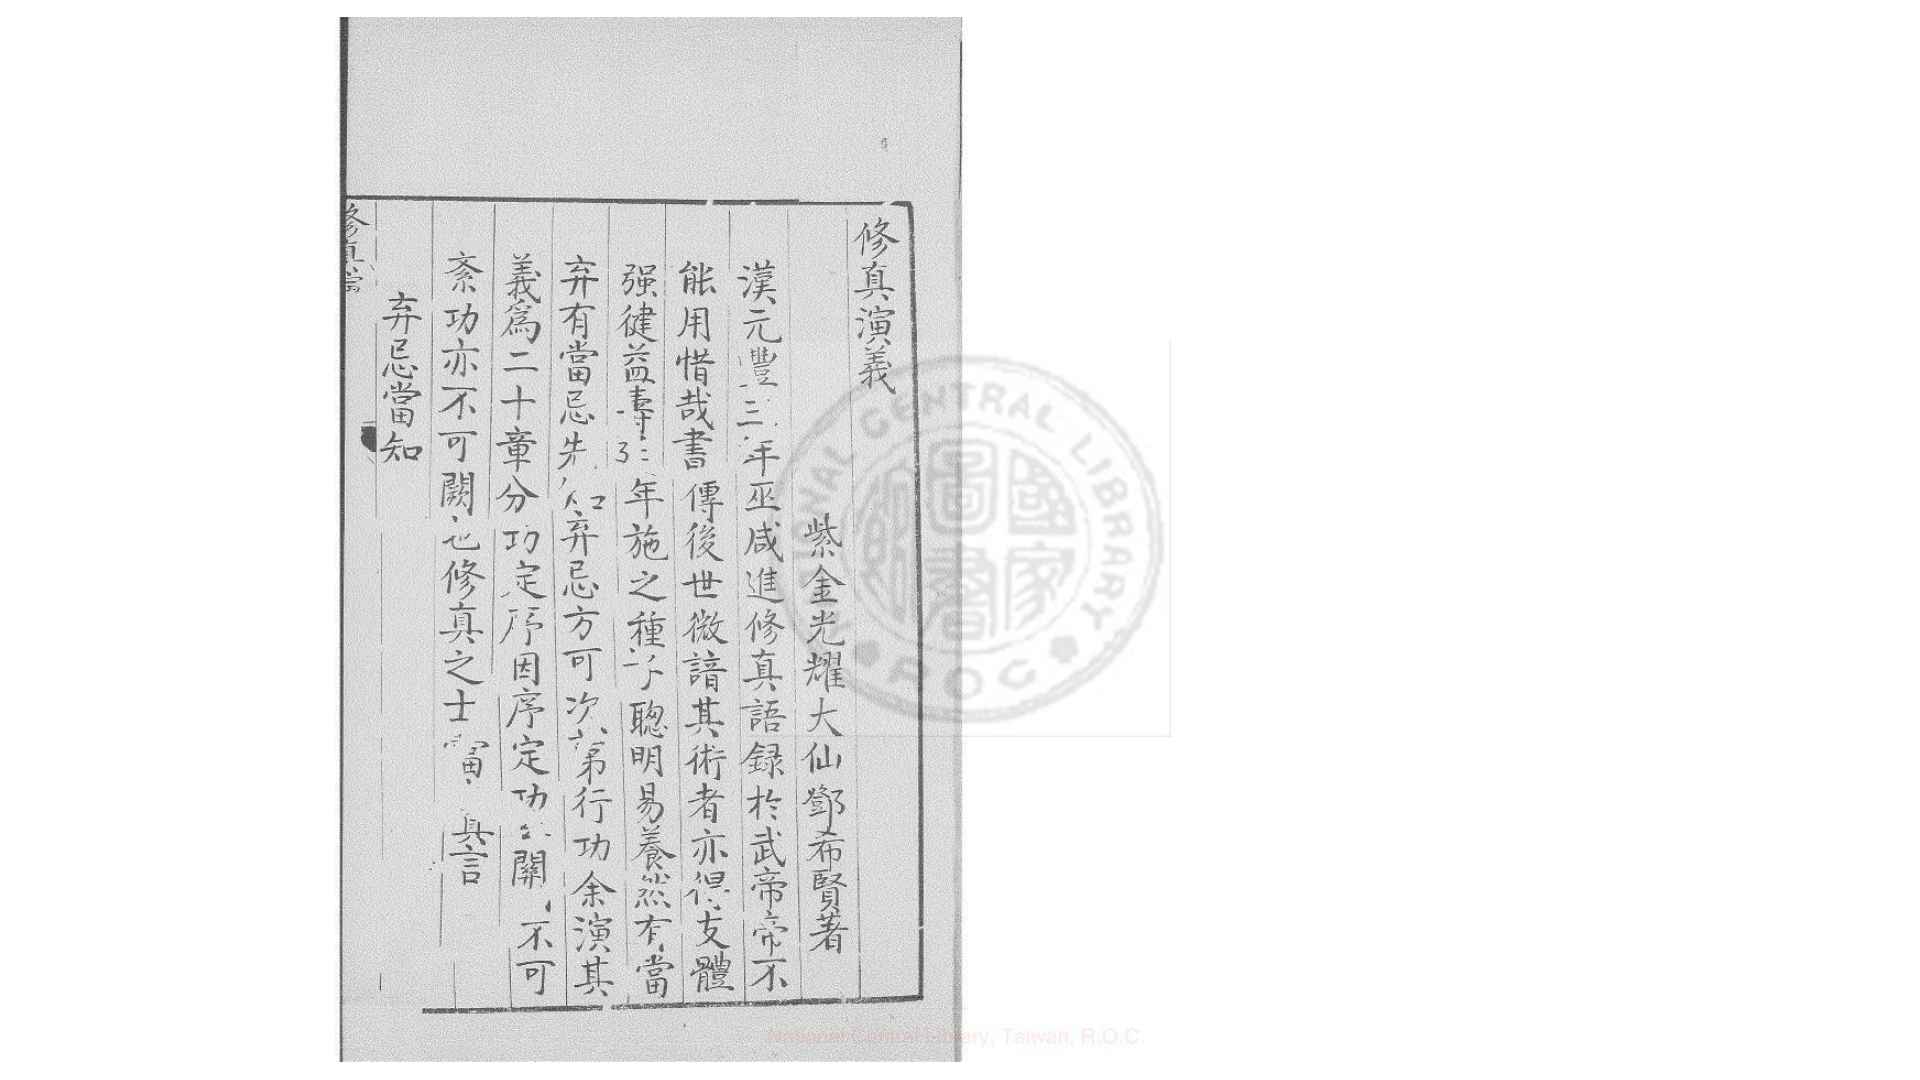 修真演義
紫金光耀大仙鄧希賢著
漢元豐三年巫咸進修真語録於武帝帝不
能用惜哉書傳後世微諳其術者亦得支體
强健益壽年施之種子聰明易養然有當
弃有當忌先知弃忌方可次第行功余演其
義爲二十章分功定序因序定功關不可
紊功亦不可闕也修真之士當真言
弃忌當知
修真
NATIONAL CENTRAL LIBRARY
ROC
國家圖書館
National Central Library, Taiwan, R.O.C.